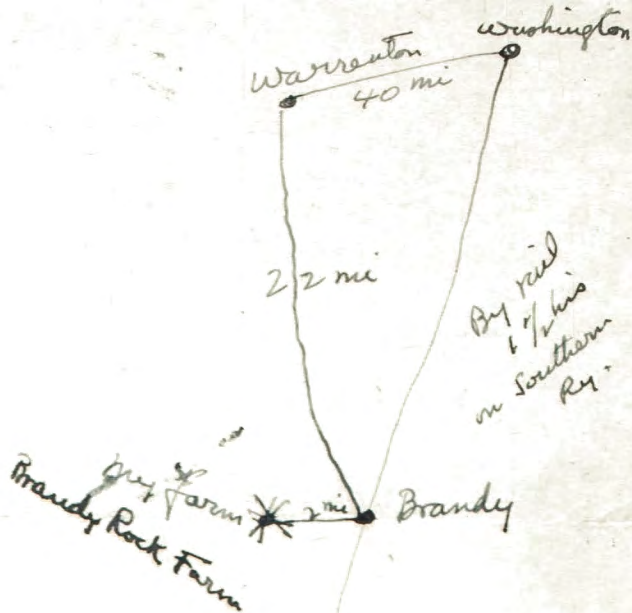 Washington
Warrenton
40 mi
22 mi
By rail
1 1/2 hrs
on Southern
Ry.
My Farm
2 mi
Brandy
Brandy Rock Farm